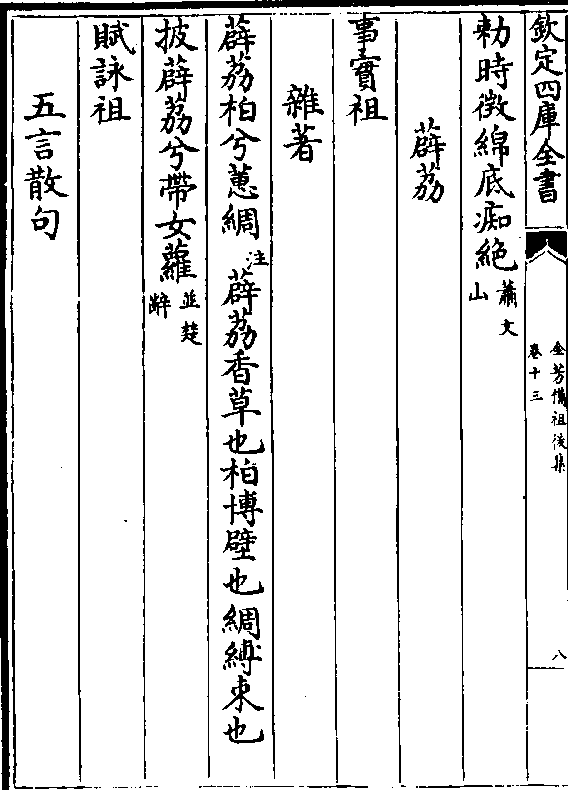 欽定四庫全書
全芳備祖後集
卷十三
八
勅時徴綿底痴絶蕭文山
薜荔
事實祖
雜著
薜荔柏兮蕙綢注薜荔香草也柏博壁也綢縛束也
披薜荔兮帶女蘿並楚辭
賦詠祖
五言散句